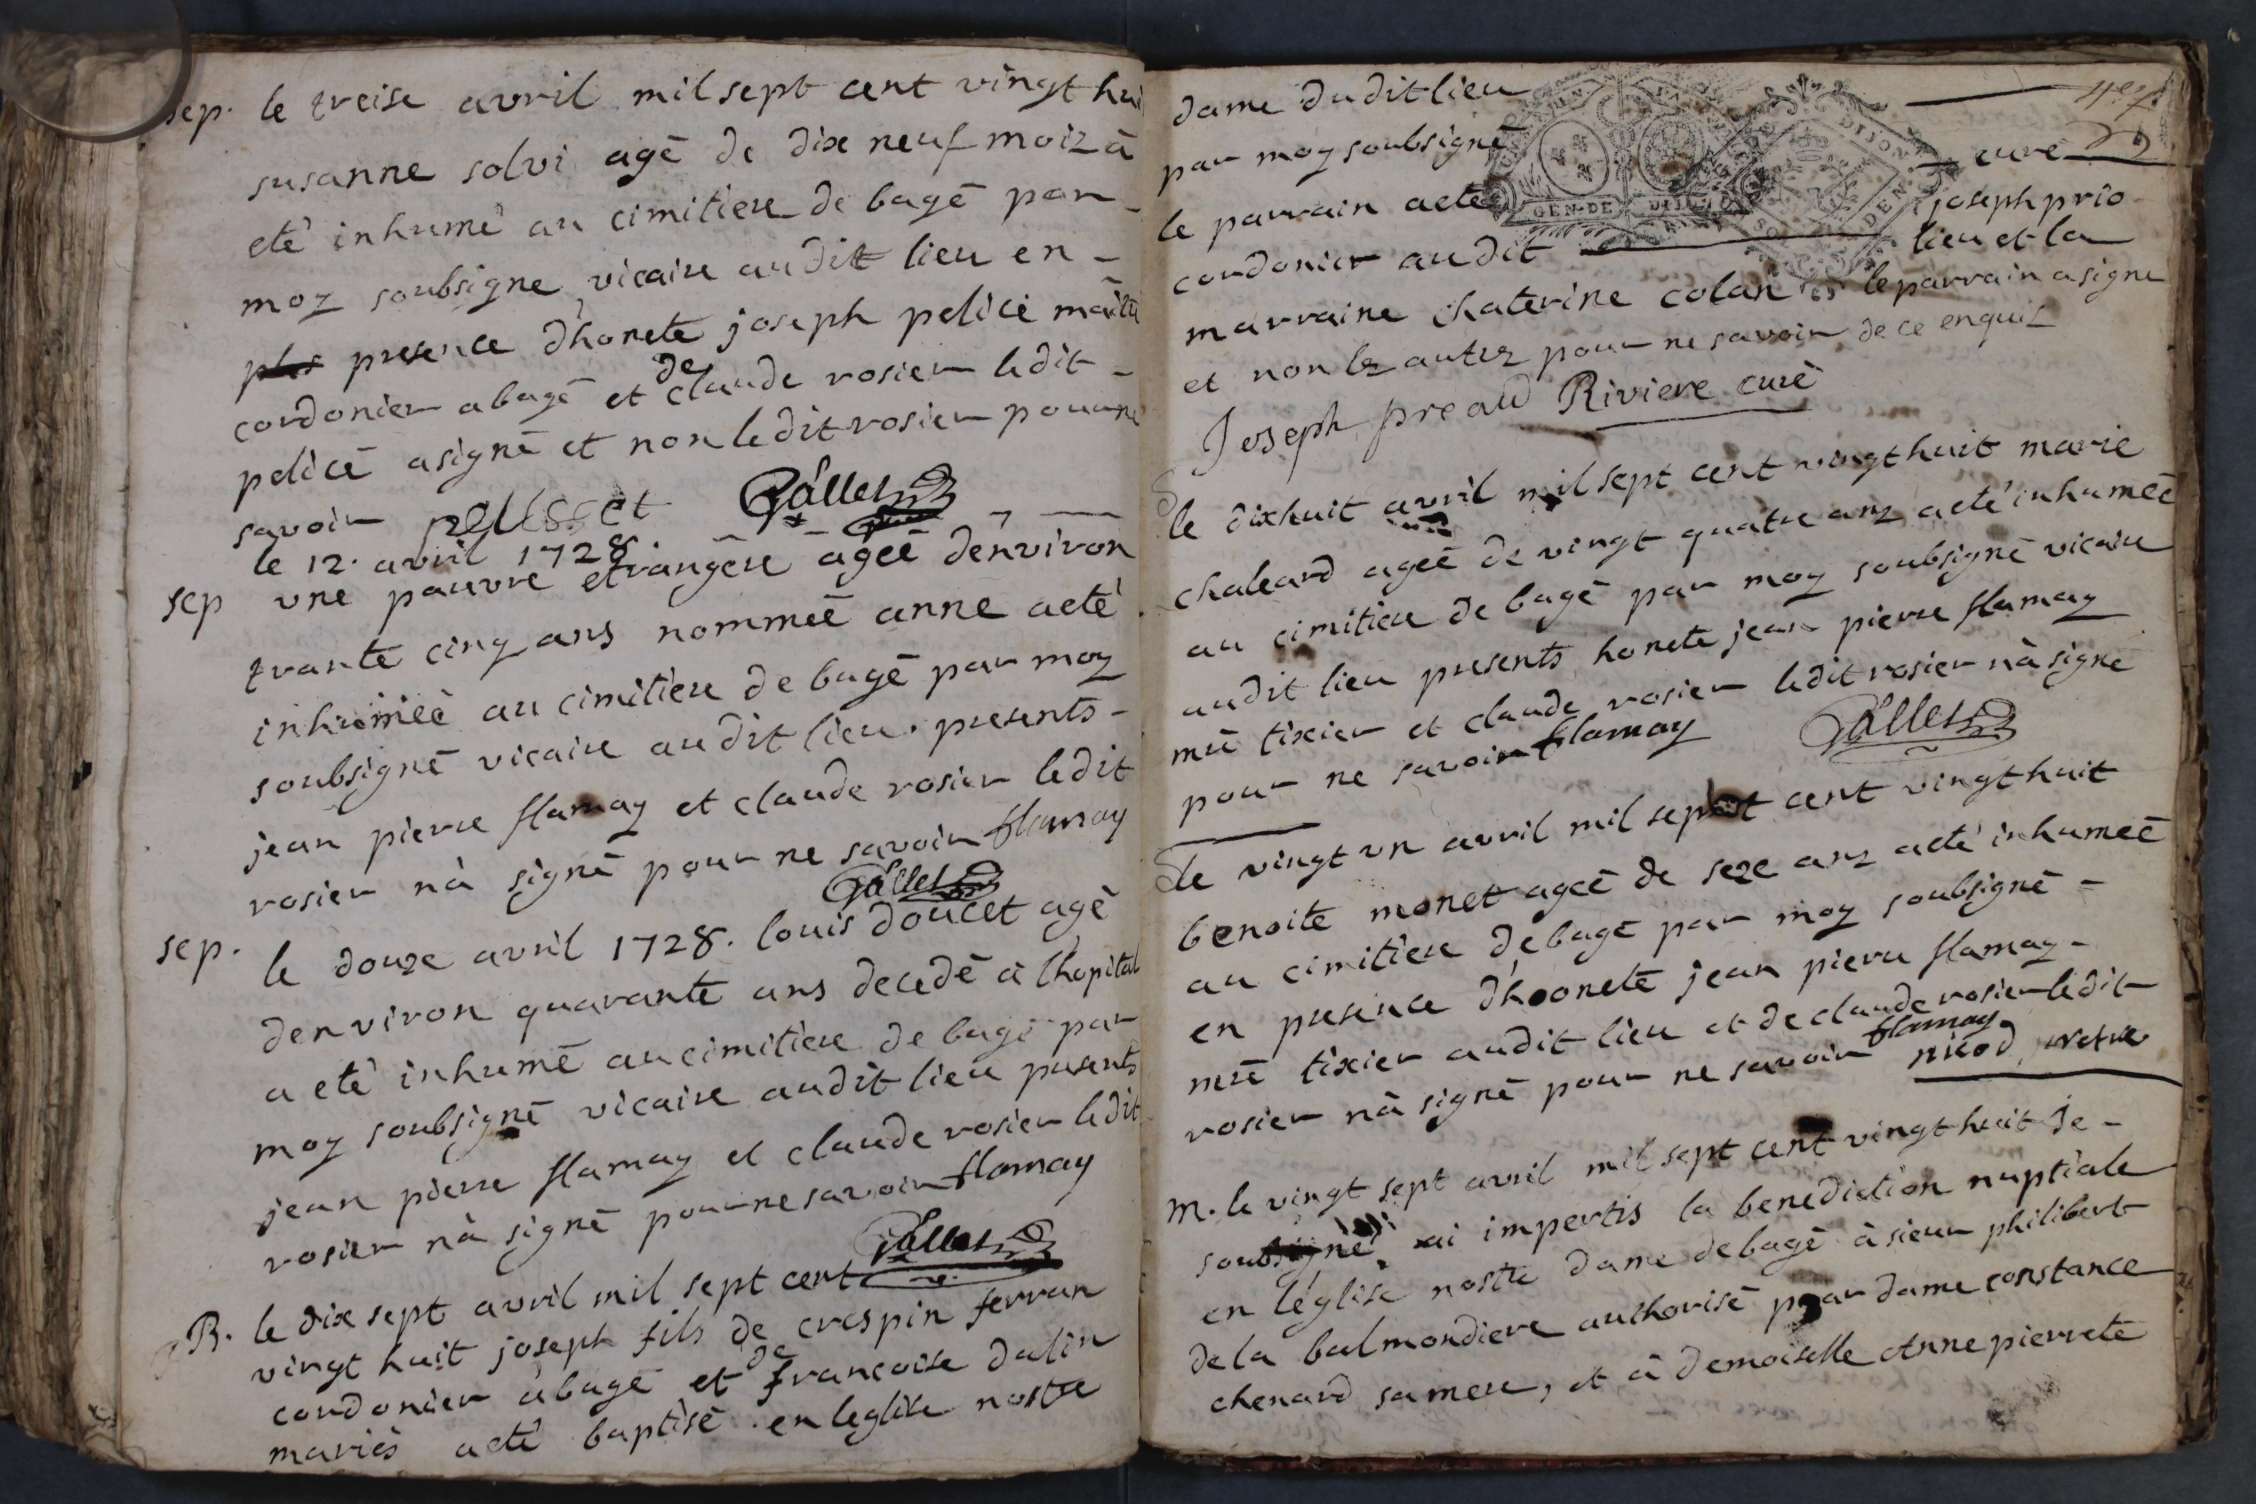 sep. le treise avril mil sept cent vingt hui
susanne solvi agé de dix neuf moiz à
eté inhumé au cimitiere de bagé par
moy soubsigne vicaire audit lieu en
plus presence d'honete joseph pelicé maitre
cordonier a bagé et de claude rosier ledit
pelicé a signé et non ledit rosier pour ne
savoir pelisset Pallet
le 12. avril 1728.
sep une pauvre etrangere ageé denviron
trante cinq ans nommeé anne a eté
inhumeé au cimitiere de bagé par moy
soubsigné vicaire audit lieu. presents
jean pierre flamay et claude rosier ledit
rosier nà signé pour ne savoir flamay
Pallet
sep. le douze avril 1728. louis doucet agé
denviron quarante ans decedé a lhopital
a eté inhumé au cimitiere de bagé par
moy soubsigné vicaire audit lieu presents
jean pierre flamay et claude rosier ledit
rosier nà signé pour ne savoir flamay
Pallet
B. le dix sept avril mil sept cent
vingt huit joseph fils de crespin ferran
cordonier à bagé et de françoise dalin
mariés a eté baptisé en leglise nostre
dame dudit lieu
par moy soubsigné curé
le parrain a eté joseph prio
cordonier audit lieu et la
marraine Chaterine colan le parrain a signe
et non lez autrez pour ne savoir de ce enquis
Joseph preau Riviere curé
le dixhuit avril mil sept cent vingt huit marie
chaleard ageé de vingt quatre anz a eté inhumeé
au cimitiere de bagé par moy soubsigné vicaire
audit lieu presents honete jean pierre flamay
mre tixier et claude rosier ledit rosier nà signé
pour ne savoir flamay Pallet
le vingt un avril mil sept cent vingt huit
benoite monet ageé de seze anz a eté inhumeé
au cimitiere de bagé par moy soubsigné
en presence d'hoonete jean pierre flamay
mre tixier audit lieu et de claude rosier ledit
rosier nà signé pour ne savoir flamay nicod, pretre
m. le vingt sept avril mil sept cent vingt huit je
soubsigné ai impertis la benediction nuptiale
en léglise nostre dame de bagé à sieur philibert
de la balmondiere authorisé par dame constance
chenard sa mere, et à demoiselle Anne pierrete